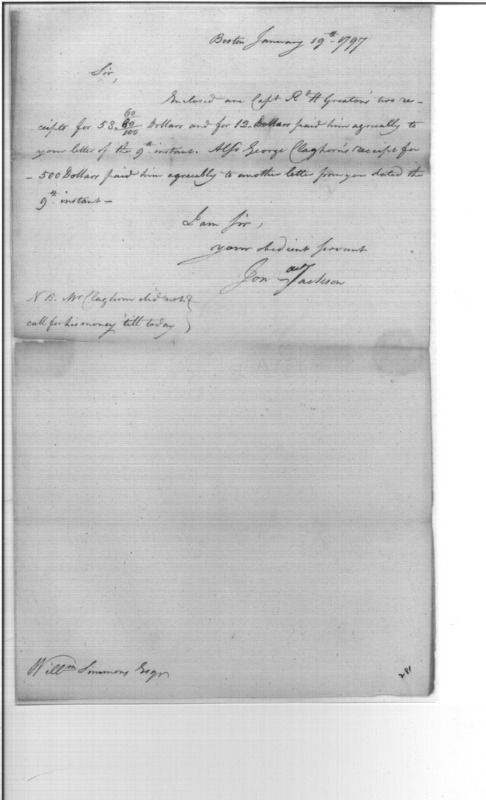 Boston January 19th 1797
Sir,
Enclosed are Capt Rd H Greaton's two re-
ceipts for 53. 60/100 Dollars and for 12. Dollars paid him agreeably to
your letter of the 9th instant. Also George Claghorn's receipt for
500 Dollars paid him agreeably to another letter from you dated the
9th instant —
I am Sir,
your obedient servant
Jonath Jackson
N B. Mr Claghorn did not
call for his money 'till today
Willm Simmons Esqr